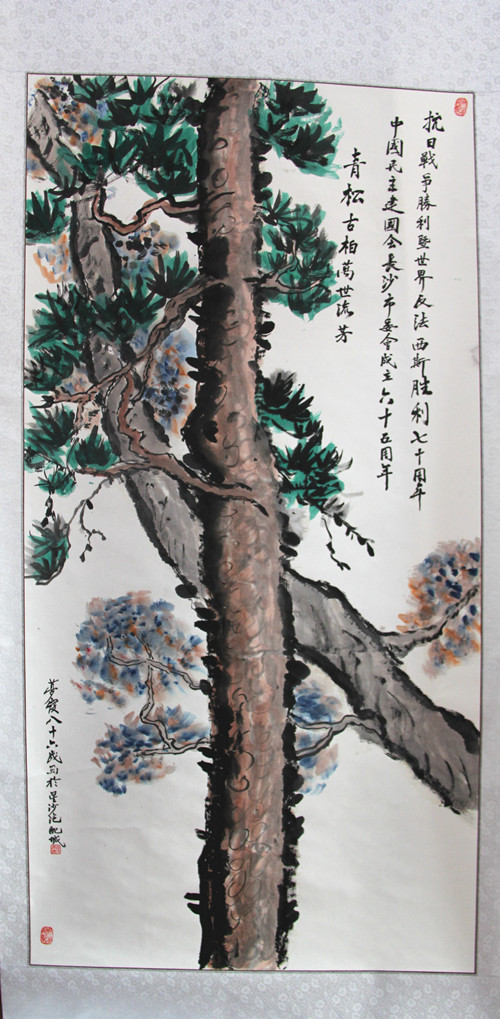 抗日戰爭勝利暨世界反法西斯胜利七十周年
中國民主建國会長沙市委會成立六十五周年
青松古柏萬世流芳
八十六歲画於星沙